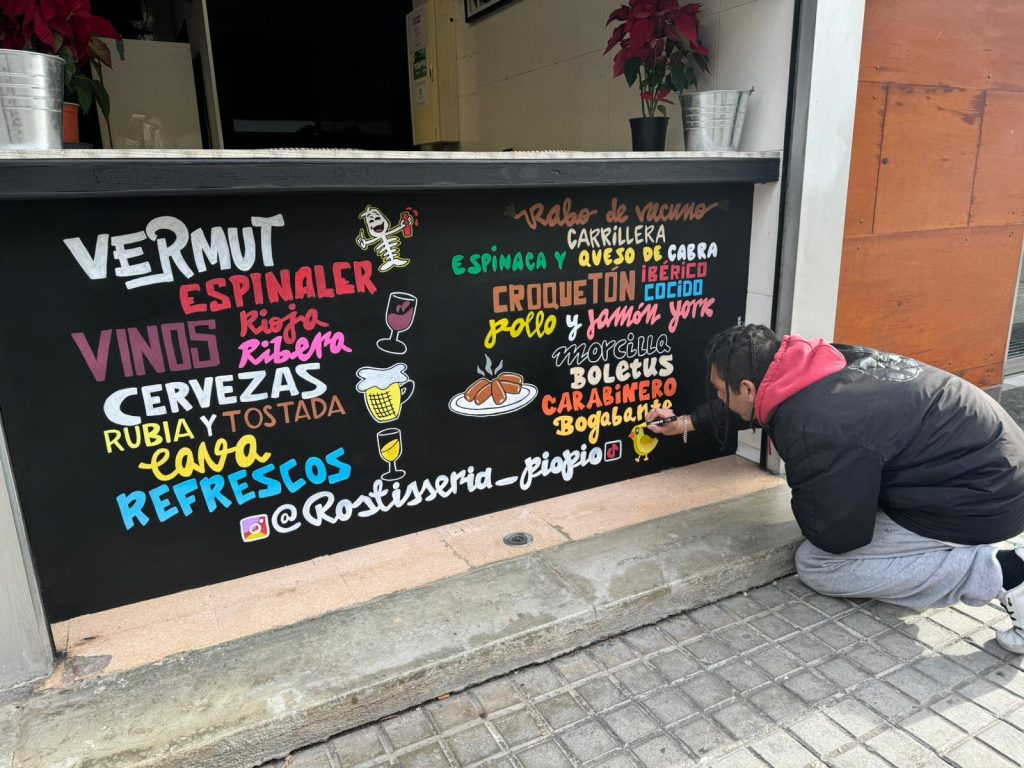 VERMUT
ESPINALER
VINOS
Rioja
Ribera
CERVEZAS
RUBIA Y TOSTADA
Cava
REFRESCOS
@Rostisseria_piopio
Rabo de vacuno
CARRILLERA
ESPINACA Y QUESO DE CABRA
CROQUETÓN
IBÉRICO
COCIDO
pollo y jamón york
morcilla
BOLETUS
CARABINERO
Bogabante